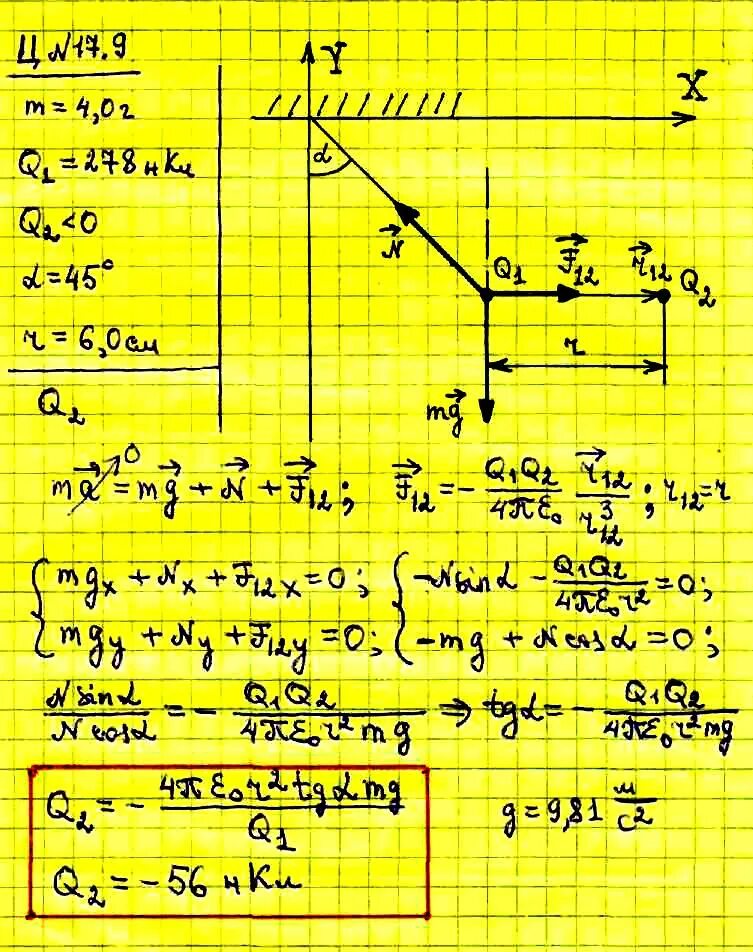 Ц N17.9
m = 4,0 г
Q₁ = 278 нКл
Q₂ < 0
α = 45°
r = 6,0 см
Q₂
Y
X
α
N⃗
Q₁
F⃗₁₂
r⃗₁₂
Q₂
r
mg⃗
ma⃗ ↗0 = mg⃗ + N⃗ + F⃗₁₂; F⃗₁₂ = - Q₁Q₂/4πε₀ r⃗₁₂/r₁₂³; r₁₂ = r
{ mgₓ + Nₓ + F₁₂ₓ = 0; { -N sinα - Q₁Q₂/4πε₀r² = 0;
mg_y + N_y + F₁₂y = 0; -mg + N cosα = 0;
N sinα/N cosα = - Q₁Q₂/4πε₀r²mg ⇒ tgα = - Q₁Q₂/4πε₀r²mg
Q₂ = - 4πε₀r² tgα mg/Q₁
g = 9,81 м/с²
Q₂ = -56 нКл